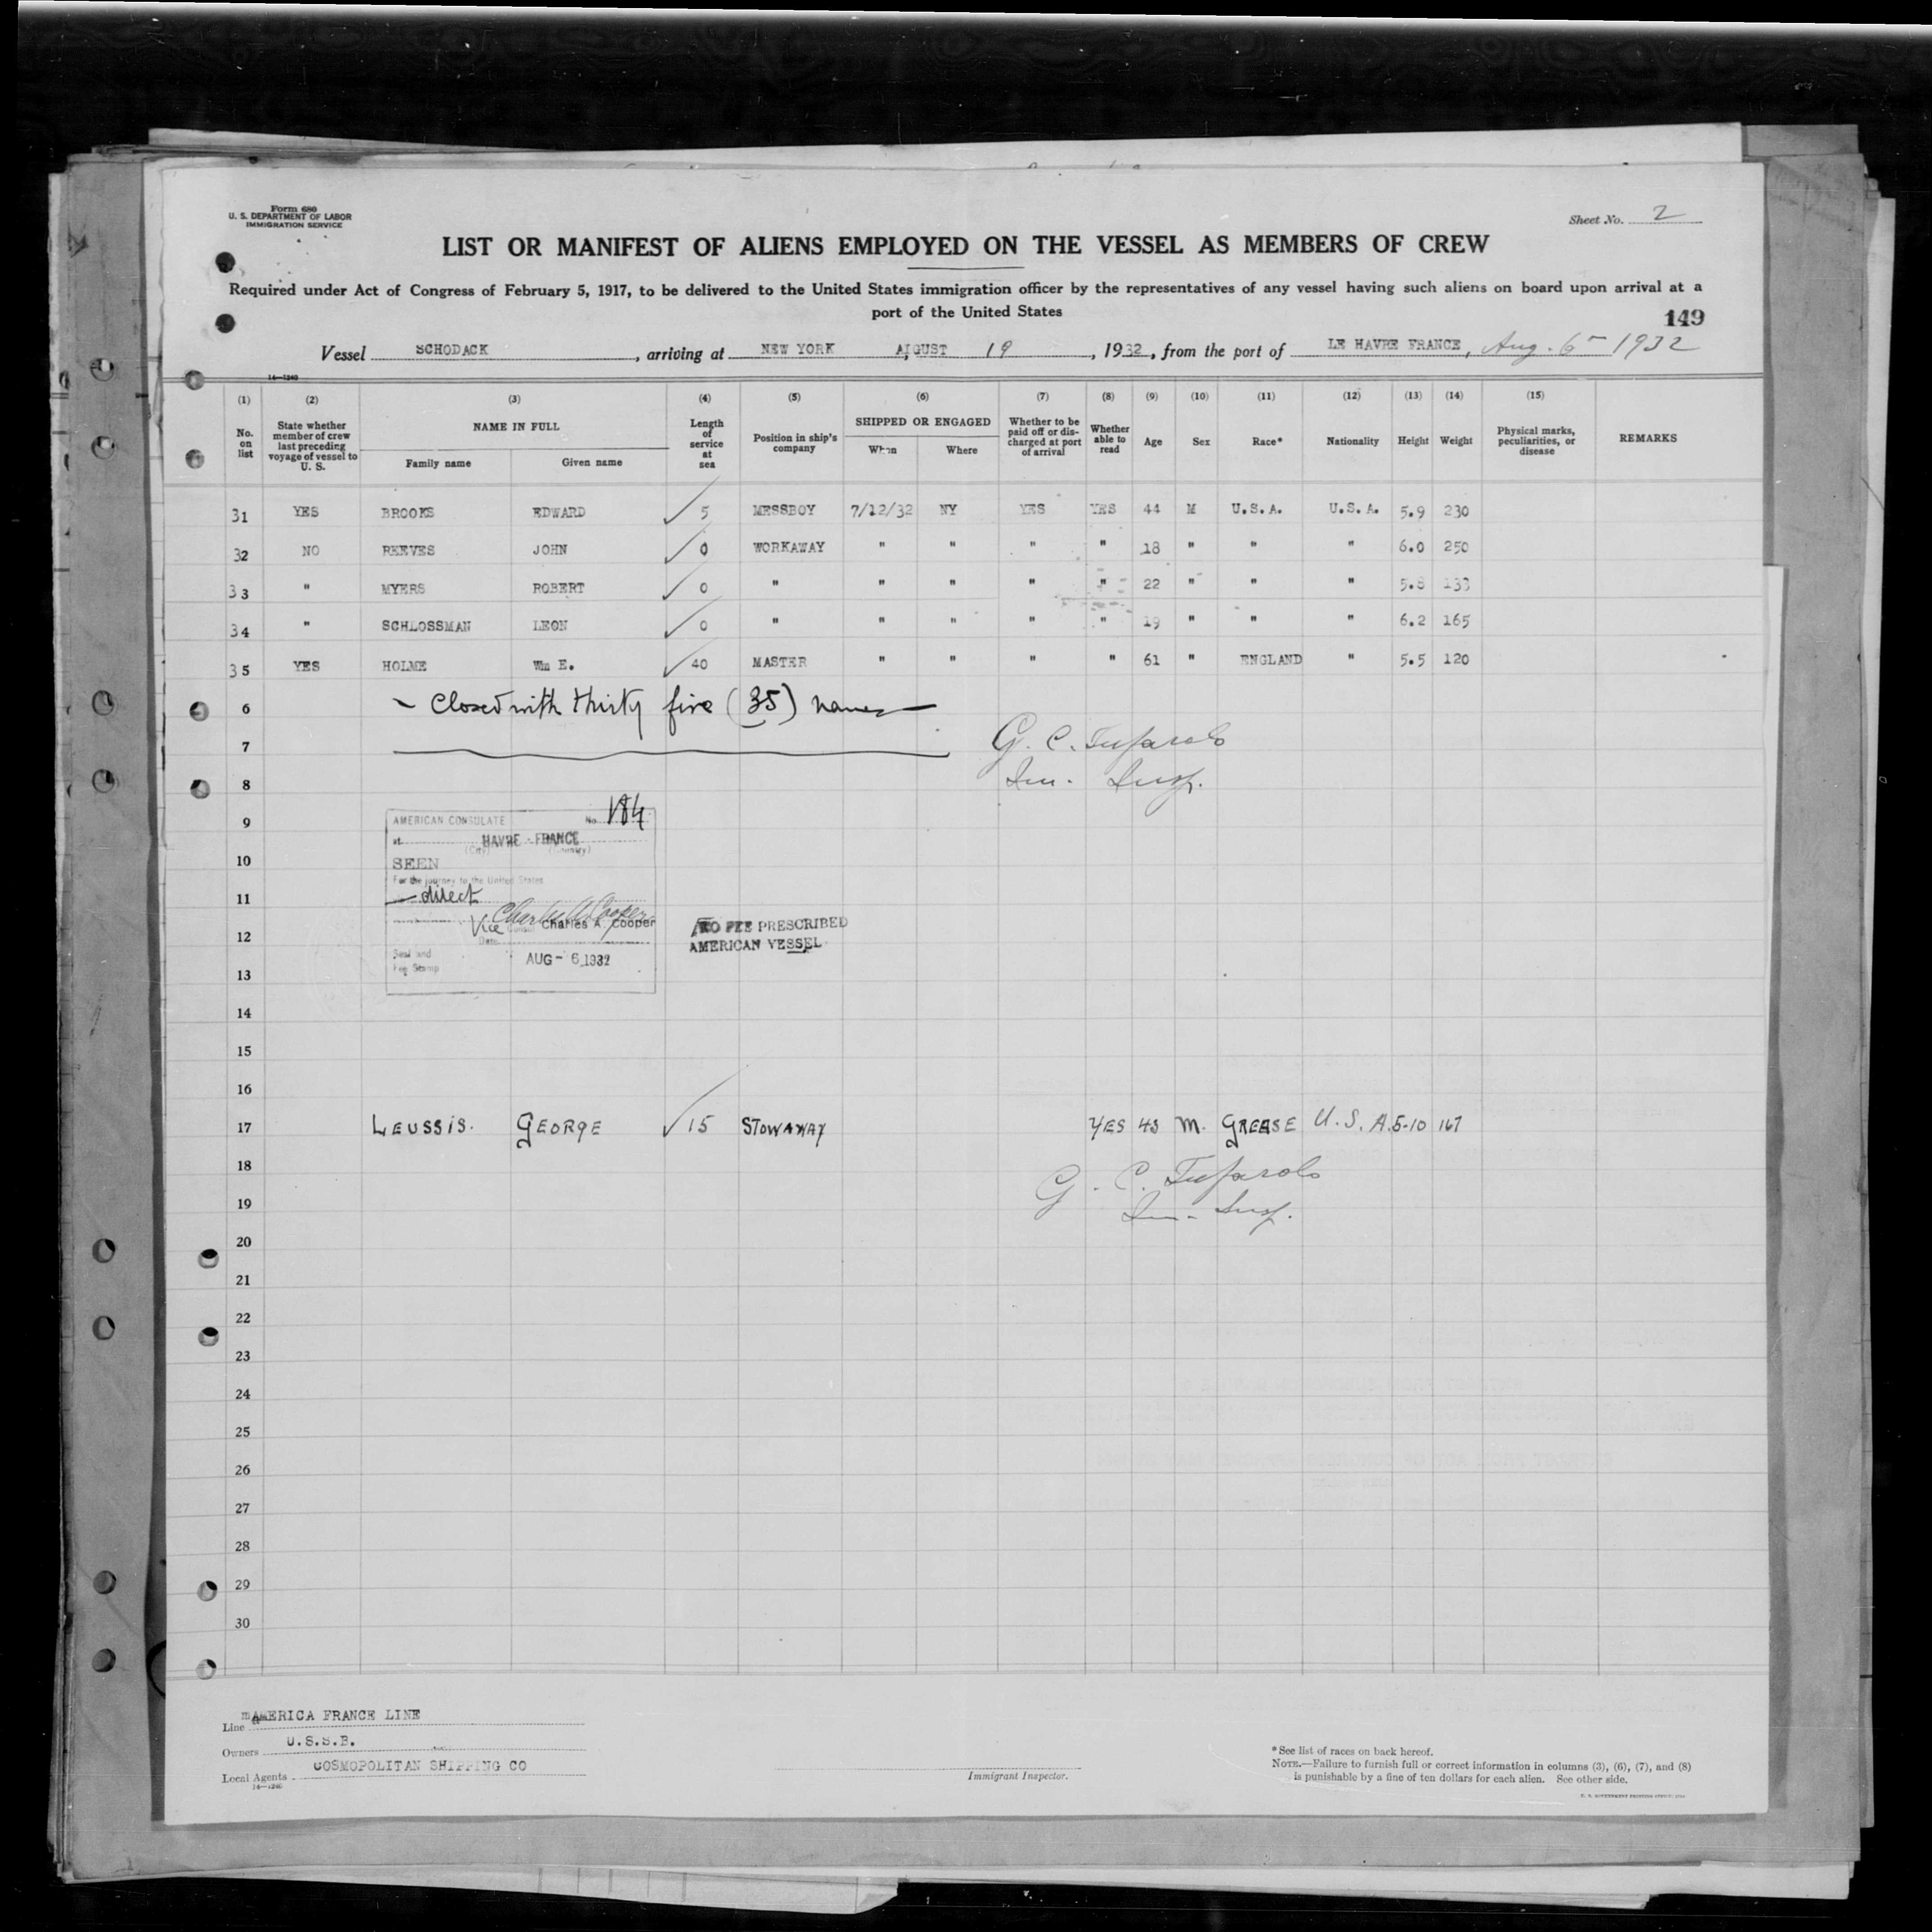 Form 680
U. S. DEPARTMENT OF LABOR
IMMIGRATION SERVICE
Sheet No. 2
LIST OR MANIFEST OF ALIENS EMPLOYED ON THE VESSEL AS MEMBERS OF CREW
Required under Act of Congress of February 5, 1917, to be delivered to the United States immigration officer by the representatives of any vessel having such aliens on board upon arrival at a
port of the United States
149
Vessel SCHODACK, arriving at NEW YORK AIGUST 19, 1932, from the port of LE HAVRE FRANCE, Aug. 6- 1932
14—1240
(1) (2) (3) (4) (5) (6) (7) (8) (9) (10) (11) (12) (13) (14) (15)
No. on list
State whether member of crew last preceding voyage of vessel to U. S.
NAME IN FULL
Family name Given name
Length of service at sea
Position in ship's company
SHIPPED OR ENGAGED
When Where
Whether to be paid off or discharged at port of arrival
Whether able to read
Age Sex Race* Nationality Height Weight
Physical marks, peculiarities, or disease
REMARKS
31 YES BROOKS EDWARD 5 MESSBOY 7/12/32 NY YES YES 44 M U.S.A. U.S.A. 5.9 230
32 NO REEVES JOHN 0 WORKAWAY " " " " 18 " " " 6.0 250
33 " MYERS ROBERT 0 " " " " " 22 " " " 5.8 133
34 " SCHLOSSMAN LEON 0 " " " " " 19 " " " 6.2 165
35 YES HOLME Wm E. 40 MASTER " " " " 61 " ENGLAND " 5.5 120
6 - Closed with thirty five (35) names -
7 G. C.
8 Im. Insp.
9 AMERICAN CONSULATE No. 184
at HAVRE - FRANCE
(City) (Country)
10 SEEN
For the journey to the United States
11 - direct
Charles A. Cooper
Vice Consul Charles A. Cooper
12 NO FEE PRESCRIBED
AMERICAN VESSEL
Date
Seal and
13 Fee Stamp AUG - 6 1932
14
15
16
17 LEUSSIS. GEORGE 15 STOWAWAY YES 43 M. GREASE U.S.A. 5-10 167
18 G. C.
19 Im. Insp.
20
21
22
23
24
25
26
27
28
29
30
Line AMERICA FRANCE LINE
Owners U.S.S.B.
Local Agents COSMOPOLITAN SHIPPING CO
14—1240
Immigrant Inspector.
*See list of races on back hereof.
NOTE.—Failure to furnish full or correct information in columns (3), (6), (7), and (8)
is punishable by a fine of ten dollars for each alien. See other side.